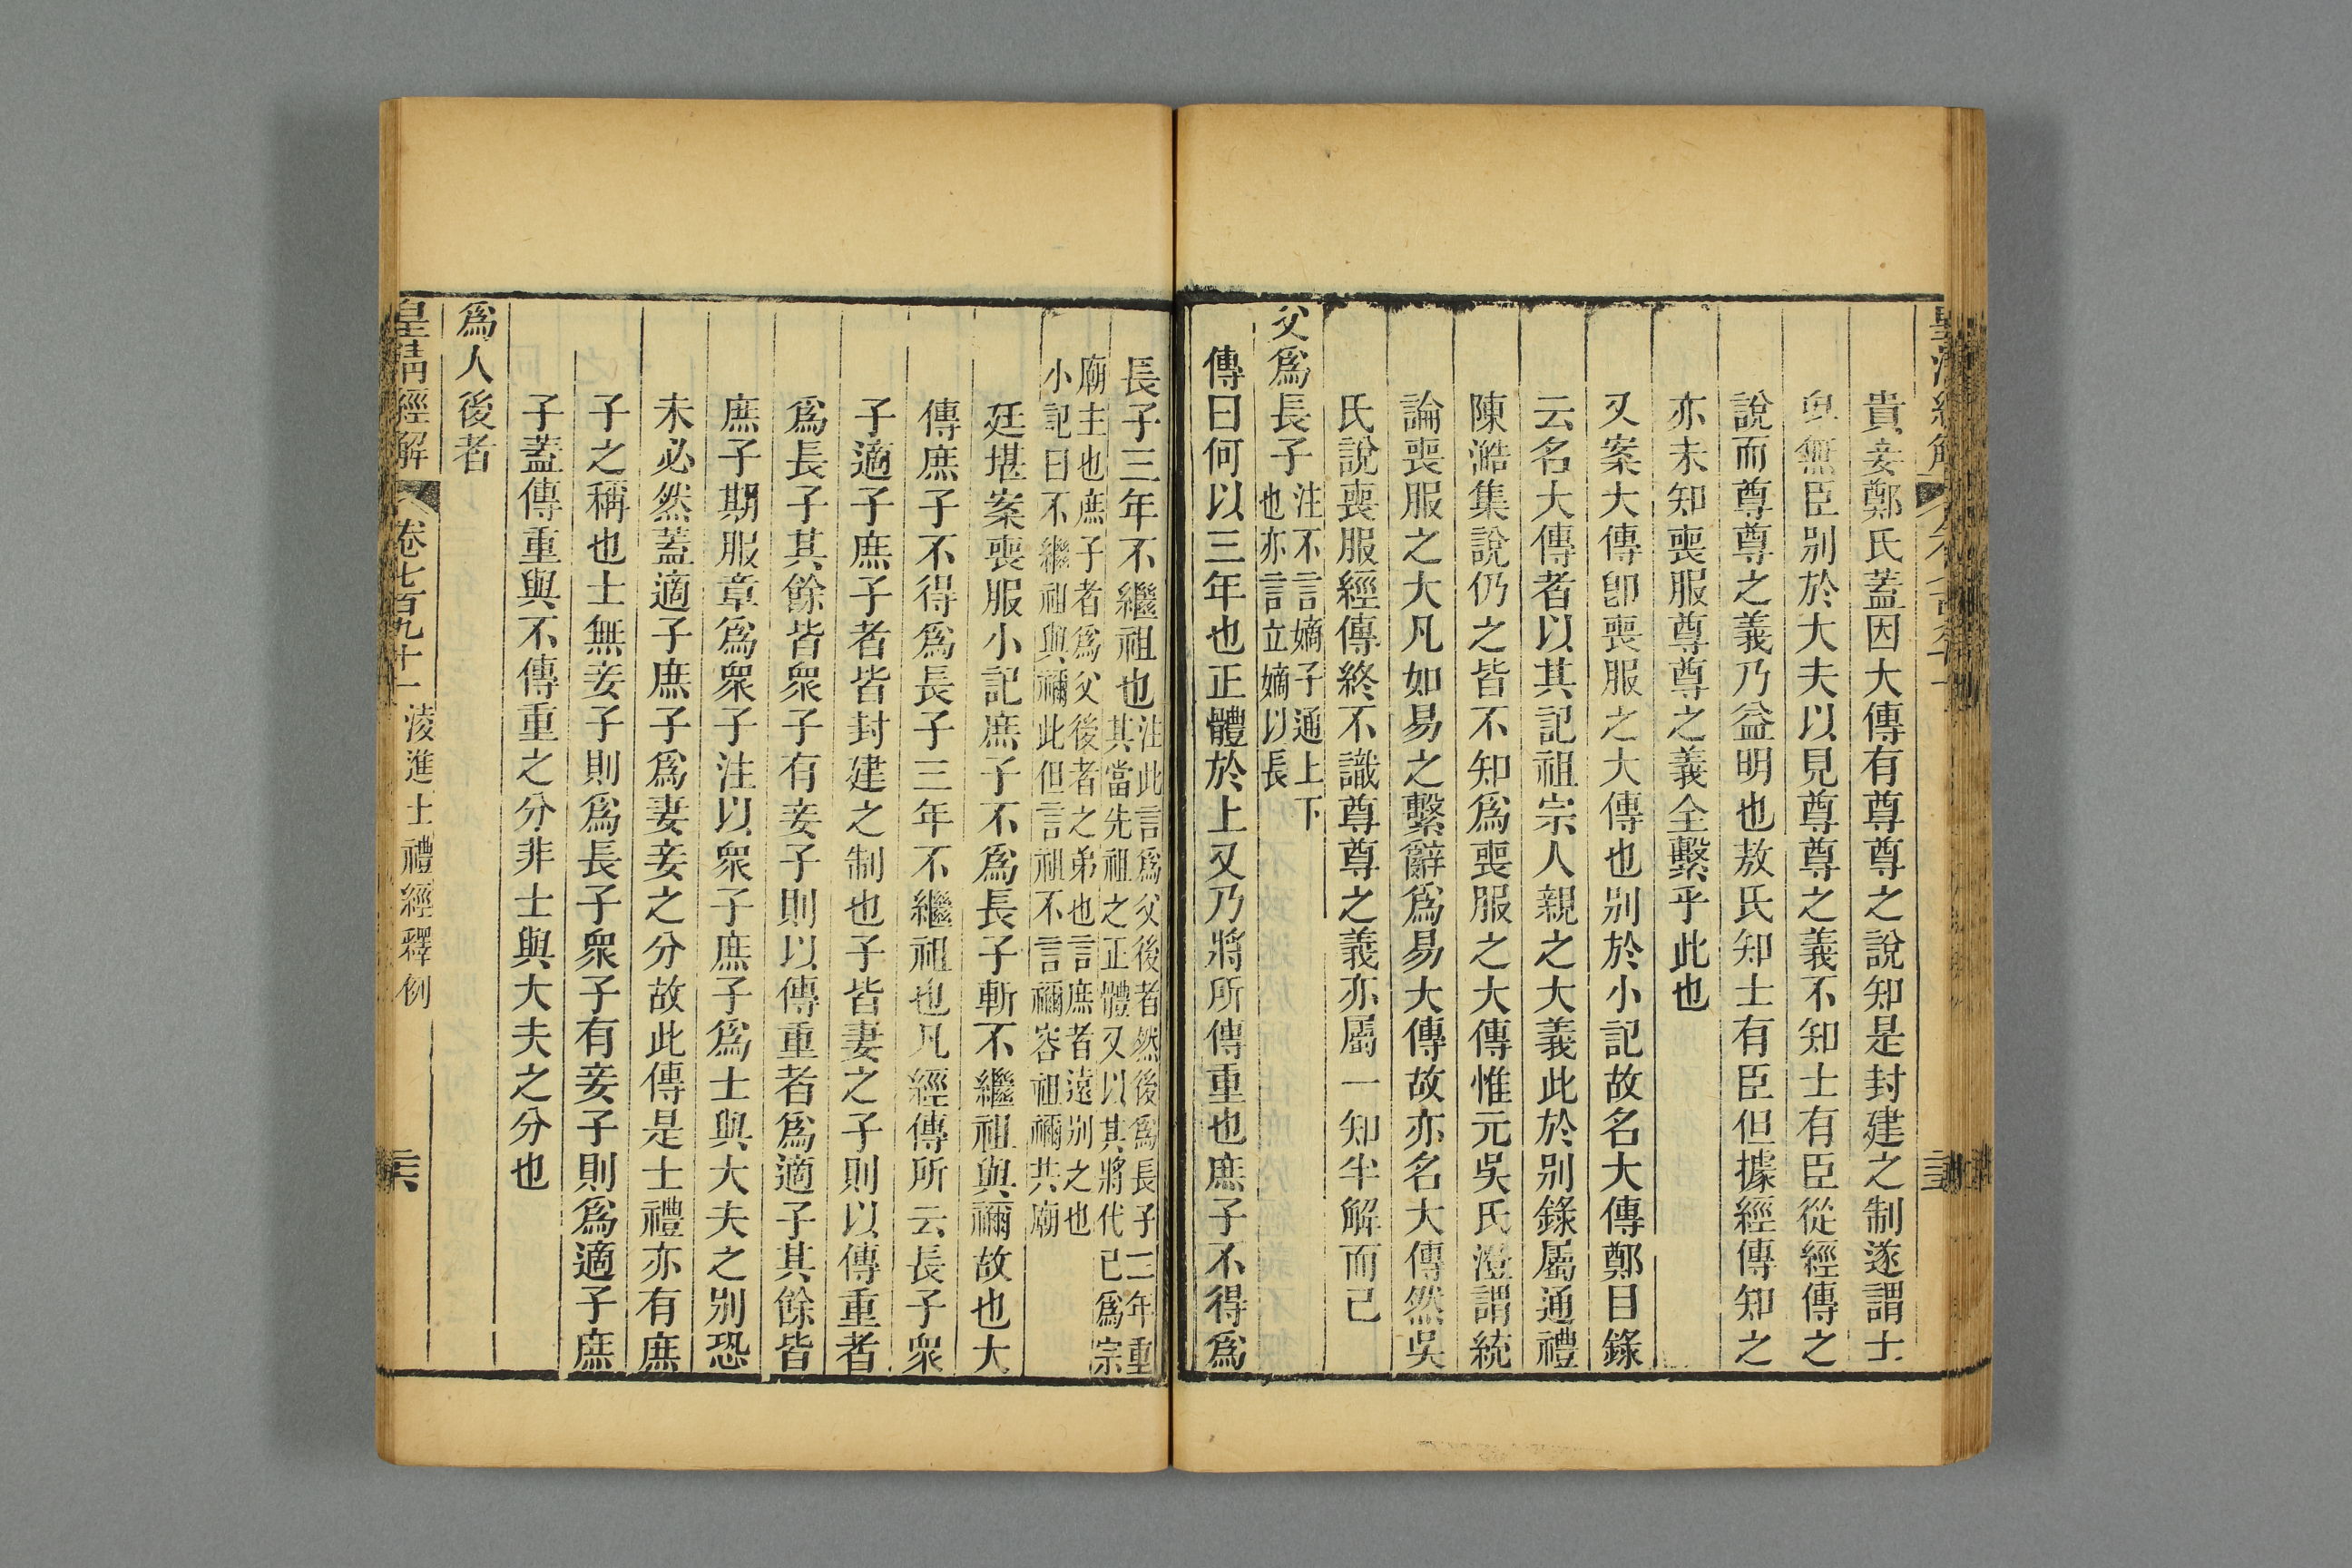 貴妾鄭氏蓋因大傳有尊尊之說知是封建之制遂謂士
卑無臣別於大夫以見尊尊之義不知士有臣從經傳之
說而尊尊之義乃益明也敖氏知士有臣但據經傳知之
亦未知喪服尊尊之義全繫乎此也
又案大傳卽喪服之大傳也別於小記故名大傳鄭目錄
云名大傳者以其記祖宗人親之大義此於別錄屬通禮
陳澔集說仍之皆不知爲喪服之大傳惟元吳氏澄謂統
論喪服之大凡如易之繫辭爲易大傳故亦名大傳然吳
氏說喪服經傳終不識尊尊之義亦屬一知半解而已
父爲長子
注不言嫡子通上下
也亦言立嫡以長
傳曰何以三年也正體於上又乃將所傳重也庶子不得爲
長子三年不繼祖也
注此言爲父後者然後爲長子三年重
其當先祖之正體又以其將代已爲宗
廟主也庶子者爲父後者之弟也言庶者遠別之也
小記曰不繼祖與禰此但言祖不言禰容祖禰共廟
廷堪案喪服小記庶子不爲長子斬不繼祖與禰故也大
傳庶子不得爲長子三年不繼祖也凡經傳所云長子衆
子適子庶子者皆封建之制也子皆妻之子則以傳重者
爲長子其餘皆衆子有妾子則以傳重者爲適子其餘皆
庶子期服章爲衆子注以衆子庶子爲士與大夫之別恐
未必然蓋適子庶子爲妻妾之分故此傳是士禮亦有庶
子之稱也士無妾子則爲長子衆子有妾子則爲適子庶
子蓋傳重與不傳重之分非士與大夫之分也
爲人後者
皇清經解 卷七百九十一 淩進士禮經釋例